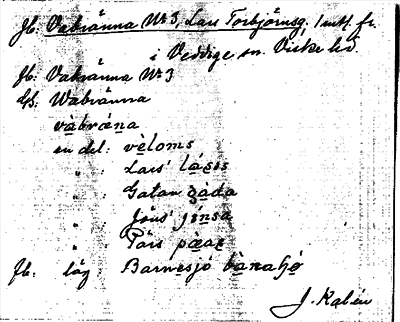 Jb. Vabränna Nr 3, Lars Torbjörnsg. 1 mtl. fr.
i Veddige sn Viske hd.
Jb. Vabränna Nr 3
Gs. Wabränna
vàbræna
en del: vèloms
" : Lars' làsis
" : Gatan gàda
" : Jöns' jènsa
" : Pärs pæaṣ
Jb. låg Barnesjö bànaʃjø
J. Kalén